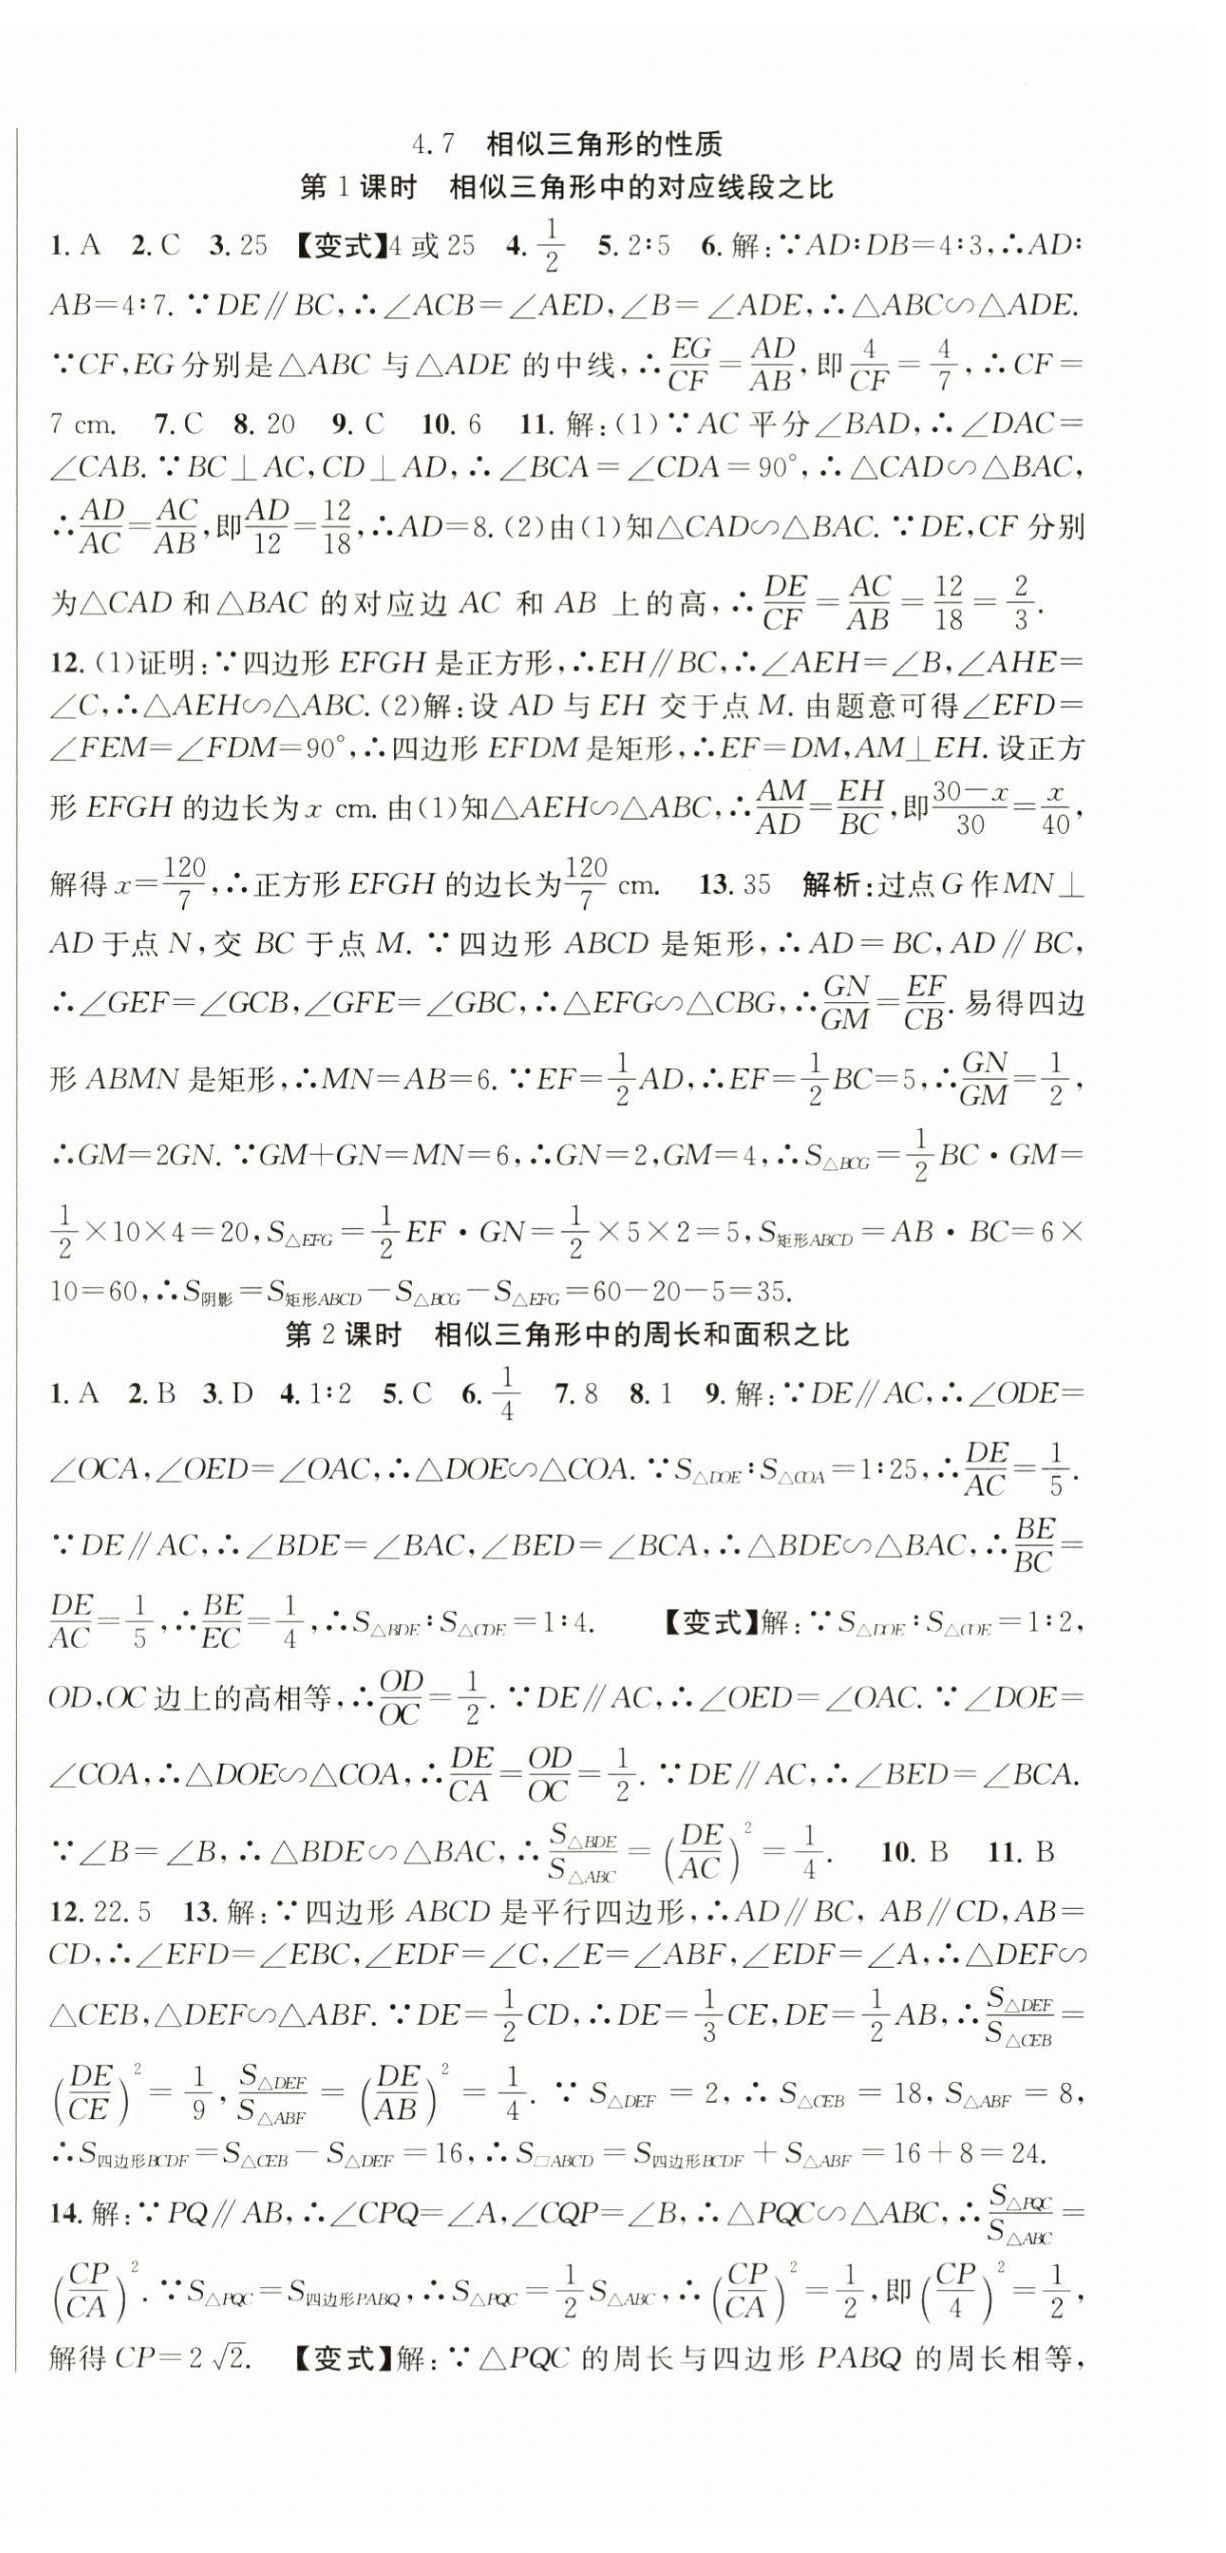 4.7 相似三角形的性质
第1课时 相似三角形中的对应线段之比
1. A 2. C 3. 25 【变式】4或25 4. 1/2 5. 2:5 6. 解:∵AD:DB=4:3,∴AD:
AB=4:7. ∵DE∥BC,∴∠ACB=∠AED,∠B=∠ADE,∴△ABC∽△ADE.
∵CF,EG分别是△ABC与△ADE的中线,∴EG/CF=AD/AB,即4/CF=4/7,∴CF=
7 cm. 7. C 8. 20 9. C 10. 6 11. 解:(1)∵AC平分∠BAD,∴∠DAC=
∠CAB. ∵BC⊥AC,CD⊥AD,∴∠BCA=∠CDA=90°,∴△CAD∽△BAC,
∴AD/AC=AC/AB,即AD/12=12/18,∴AD=8. (2)由(1)知△CAD∽△BAC. ∵DE,CF分别
为△CAD和△BAC的对应边AC和AB上的高,∴DE/CF=AC/AB=12/18=2/3.
12. (1)证明:∵四边形EFGH是正方形,∴EH∥BC,∴∠AEH=∠B,∠AHE=
∠C,∴△AEH∽△ABC. (2)解:设AD与EH交于点M. 由题意可得∠EFD=
∠FEM=∠FDM=90°,∴四边形EFDM是矩形,∴EF=DM,AM⊥EH. 设正方
形EFGH的边长为x cm. 由(1)知△AEH∽△ABC,∴AM/AD=EH/BC,即(30-x)/30=x/40,
解得x=120/7,∴正方形EFGH的边长为120/7 cm. 13. 35 解析:过点G作MN⊥
AD于点N,交BC于点M. ∵四边形ABCD是矩形,∴AD=BC,AD∥BC,
∴∠GEF=∠GCB,∠GFE=∠GBC,∴△EFG∽△CBG,∴GN/GM=EF/CB. 易得四边
形ABMN是矩形,∴MN=AB=6. ∵EF=1/2AD,∴EF=1/2BC=5,∴GN/GM=1/2,
∴GM=2GN. ∵GM+GN=MN=6,∴GN=2,GM=4,∴S△BCG=1/2BC·GM=
1/2×10×4=20,S△EFG=1/2EF·GN=1/2×5×2=5,S矩形ABCD=AB·BC=6×
10=60,∴S阴影=S矩形ABCD-S△BCG-S△EFG=60-20-5=35.
第2课时 相似三角形中的周长和面积之比
1. A 2. B 3. D 4. 1:2 5. C 6. 1/4 7. 8 8. 1 9. 解:∵DE∥AC,∴∠ODE=
∠OCA,∠OED=∠OAC,∴△DOE∽△COA. ∵S△DOE:S△COA=1:25,∴DE/AC=1/5.
∵DE∥AC,∴∠BDE=∠BAC,∠BED=∠BCA,∴△BDE∽△BAC,∴BE/BC=
DE/AC=1/5,∴BE/EC=1/4,∴S△BDE:S△CDE=1:4. 【变式】解:∵S△DOE:S△COE=1:2,
OD,OC边上的高相等,∴OD/OC=1/2. ∵DE∥AC,∴∠OED=∠OAC. ∵∠DOE=
∠COA,∴△DOE∽△COA,∴DE/CA=OD/OC=1/2. ∵DE∥AC,∴∠BED=∠BCA.
∵∠B=∠B,∴△BDE∽△BAC,∴S△BDE/S△ABC=(DE/AC)²=1/4. 10. B 11. B
12. 22.5 13. 解:∵四边形ABCD是平行四边形,∴AD∥BC, AB∥CD,AB=
CD,∴∠EFD=∠EBC,∠EDF=∠C,∠E=∠ABF,∠EDF=∠A,∴△DEF∽
△CEB,△DEF∽△ABF. ∵DE=1/2CD,∴DE=1/3CE,DE=1/2AB,∴S△DEF/S△CEB=
(DE/CE)²=1/9,S△DEF/S△ABF=(DE/AB)²=1/4. ∵S△DEF=2,∴S△CEB=18,S△ABF=8,
∴S四边形BCDF=S△CEB-S△DEF=16,∴S□ABCD=S四边形BCDF+S△ABF=16+8=24.
14. 解:∵PQ∥AB,∴∠CPQ=∠A,∠CQP=∠B,∴△PQC∽△ABC,∴S△PQC/S△ABC=
(CP/CA)². ∵S△PQC=S四边形PABQ,∴S△PQC=1/2S△ABC,∴(CP/CA)²=1/2,即(CP/4)²=1/2,
解得CP=2√2. 【变式】解:∵△PQC的周长与四边形PABQ的周长相等,